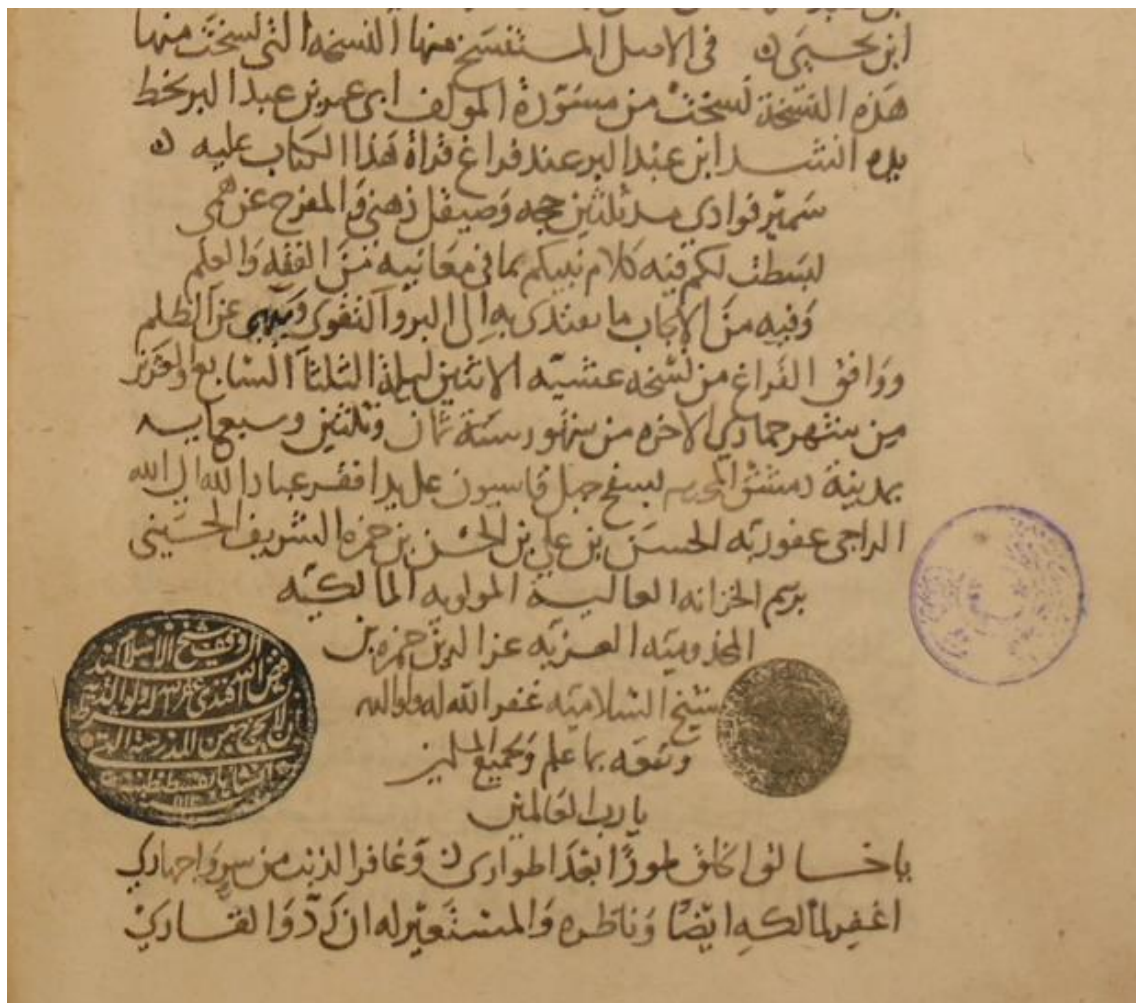 ابن يحيى ن في الاصل المستنسخ منها النسخة التي نسخت منها
هذه النسخة نسخت من مسودة المولف ابي عمر بن عبد البر بخط
يده انشد ابن عبد البر عند فراغ قراة هذا الكتاب عليه ن
سمير فوادي مذ ثلثين حجه وصيقل ذهني والمفرج عن همي
بسطت لكم فيه كلام نبيكم بما في معانيه من الفقه والعلم
وفيه من الاداب ما يهتدى به الى البر والتقوى وينهى عن الظلم
ووافق الفراغ من نسخه عشيه الاثنين ليلة الثلثا السابع والعشر
ين من شهر جمادي الاخره من شهور سنة ثمان وثلثين وسبعمايه
بمدينة دمشق المحروسه بسفح جبل قاسيون على يد افقر عباد الله الى الله
الراجى عفو ربه الحسن بن علي بن الحسن بن حمزه الشريف الحسيني
برسم الخزانه العالية المولويه المالكيه
المخدوميه العزيه عز الدين حمزه بن
شيخ السلاميه غفر الله له ولوالديه
ونفعه بما علم ولجميع المسلمين
يارب العالمين
يا خالق الخلق طورًا بعد اطوار ن وغافر الذنب من سر واجهار
اغفر لمالكه ايضًا وناظره والمستعير له ان رد والقاري